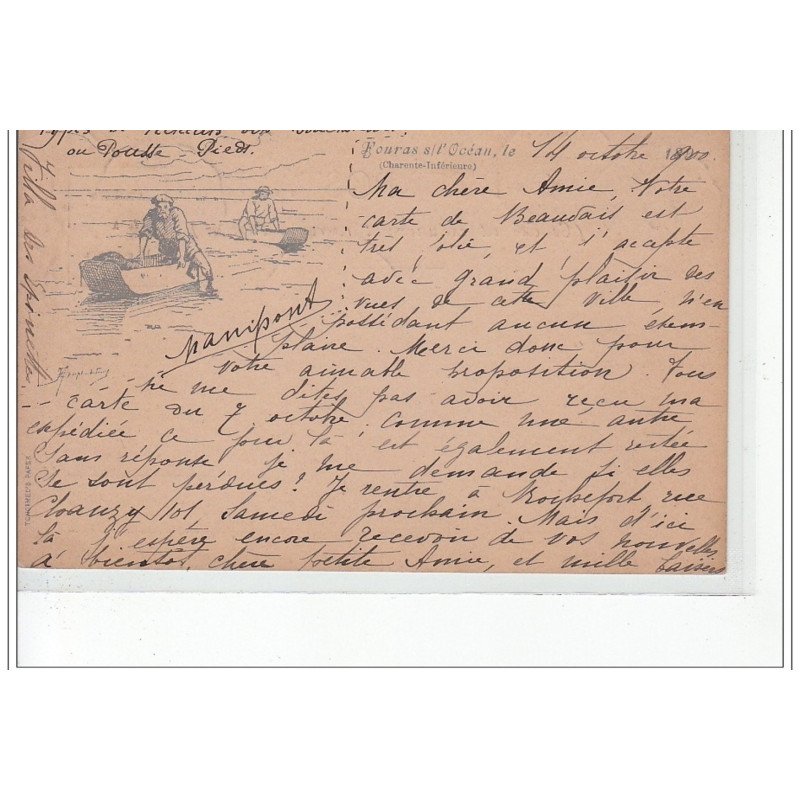 Types de Pêcheurs des
ou Pousse-Pieds.
Fouras s/l'Océan, le 14 octobre 1900
(Charente-Inférieure)
Villa des
Ma chère Amie, Votre
carte de Beauvais est
très jolie, et j'accepte
avec grand plaisir des
vues de cette ville, n'en
possédant aucun exem-
plaire. Merci donc pour
votre aimable proposition. Vous
ne me dites pas avoir reçu ma
carte du 7 octobre. Comme une autre
expédiée ce jour là est également restée
sans réponse je me demande si elles
se sont perdues? Je rentre à Rochefort rue
Chanzy 101 Samedi prochain. Mais d'ici
là j'espère encore recevoir de vos nouvelles
à bientôt, chère petite Amie, et mille baisers